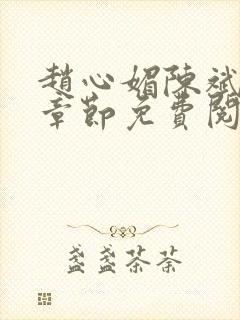 趙心媚陳斌
章節免費閱
盞盞茶茶